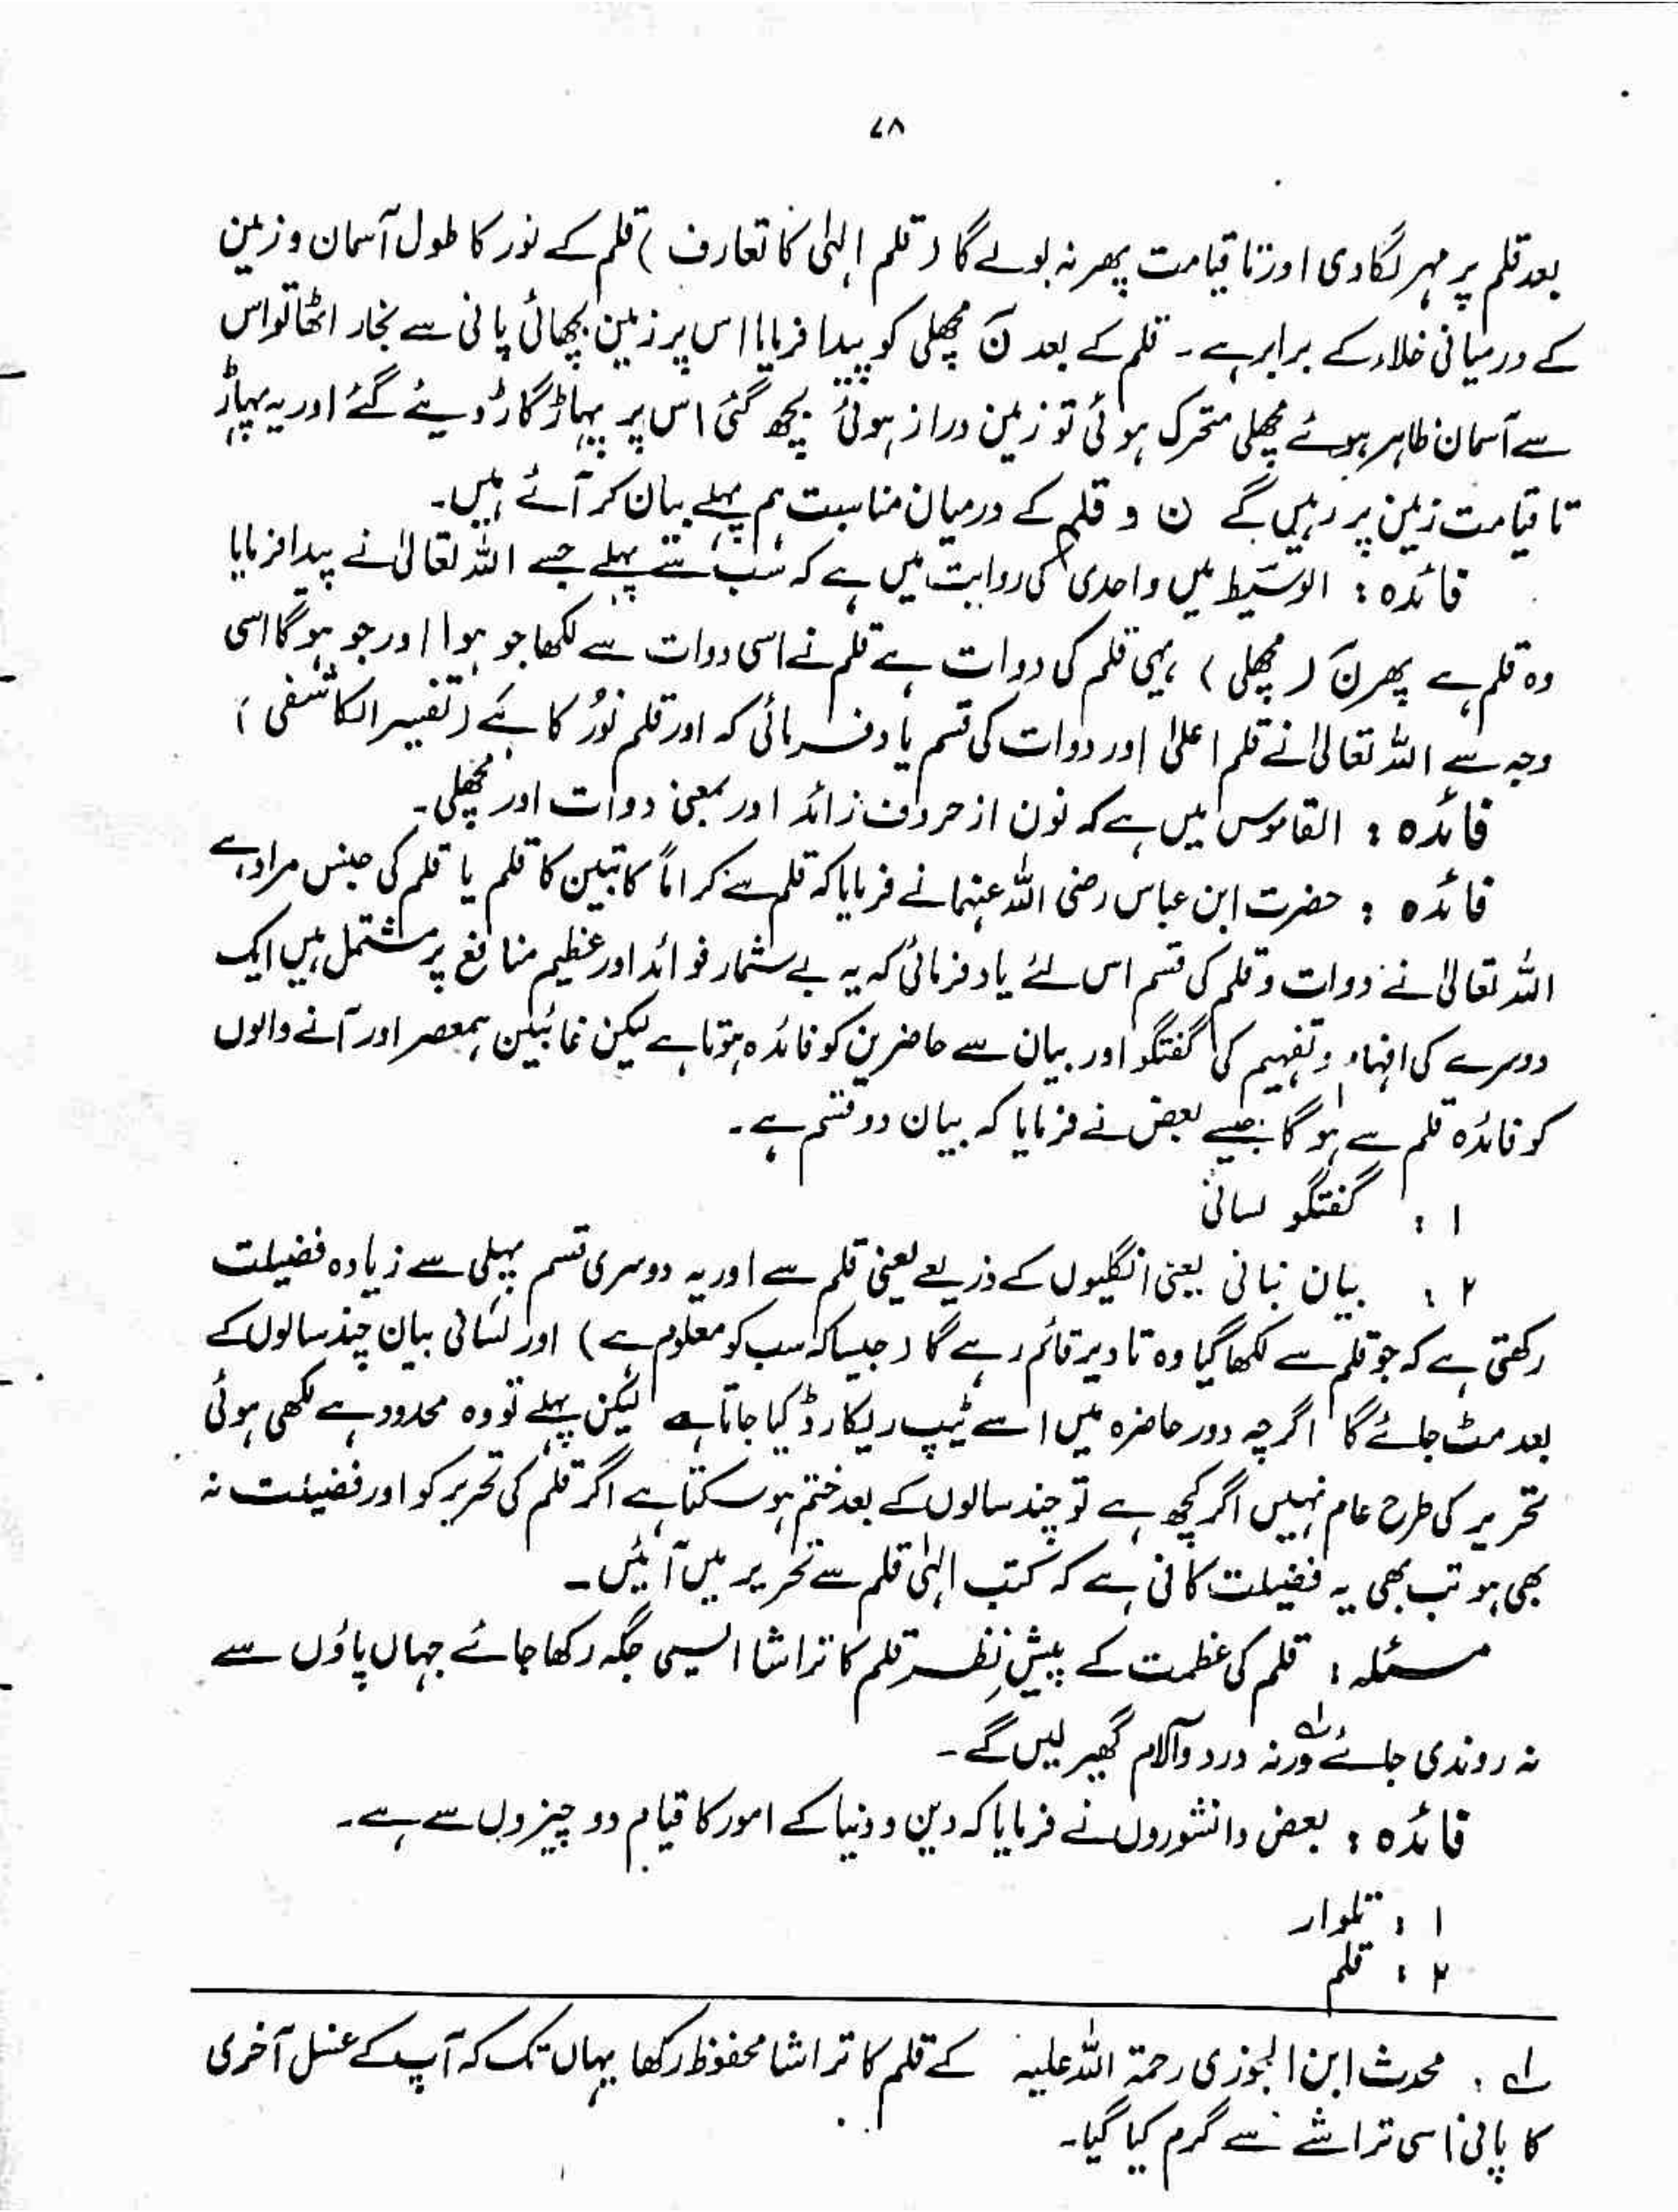 ۷۸
بعد قلم پر مہر لگا دی اور تا قیامت پھر نہ بولے گا (قلم الہٰی کا تعارف) قلم کے نور کا طول آسمان و زمین
کے درمیانی خلاء کے برابر ہے ۔ قلم کے بعد نَ مچھلی کو پیدا فرمایا اس پر زمین بچھائی پانی سے بخار اٹھا تو اس
سے آسمان ظاہر ہوئے مچھلی متحرک ہوئی تو زمین دراز ہوئی بچھ گئی اس پر پہاڑ گاڑ دیئے گئے اور یہ پہاڑ
تا قیامت زمین پر رہیں گے ن و قلم کے درمیان مناسبت ہم پہلے بیان کر آئے ہیں۔
فائدہ : الوسیط میں واحدی کی روایت میں ہے کہ سب سے پہلے جسے اللہ تعالیٰ نے پیدا فرمایا
وہ قلم ہے پھر نَ (مچھلی) یہی قلم کی دوات ہے قلم نے اسی دوات سے لکھا جو ہوا اور جو ہو گا اسی
وجہ سے اللہ تعالیٰ نے قلم اعلیٰ اور دوات کی قسم یاد فرمائی کہ اور قلم نُور کا ہے (تفسیر الکاشفی)
فائدہ : القاموس میں ہے کہ نون از حروف زائد اور بمعنیٰ دوات اور مچھلی۔
فائدہ : حضرت ابن عباس رضی اللہ عنہما نے فرمایا کہ قلم سے کراماً کاتبین کا قلم یا قلم کی جنس مراد ہے
اللہ تعالیٰ نے دوات و قلم کی قسم اس لئے یاد فرمائی کہ یہ بے شمار فوائد اور عظیم منافع پر مشتمل ہیں ایک
دوسرے کی افہام و تفہیم کی گفتگو اور بیان سے حاضرین کو فائدہ ہوتا ہے لیکن غائبین ہمعصر اور آنے والوں
کو فائدہ قلم سے ہو گا جیسے بعض نے فرمایا کہ بیان دو قسم ہے۔
۱ : گفتگو لسانی
۲ : بیان بنانی یعنی انگلیوں کے ذریعے یعنی قلم سے اور یہ دوسری قسم پہلی سے زیادہ فضیلت
رکھتی ہے کہ جو قلم سے لکھا گیا وہ تا دیر قائم رہے گا (جیسا کہ سب کو معلوم ہے) اور لسانی بیان چند سالوں کے
بعد مٹ جائے گا اگرچہ دور حاضرہ میں اسے ٹیپ ریکارڈ کیا جاتا ہے لیکن پہلے تو وہ محدود ہے لکھی ہوئی
تحریر کی طرح عام نہیں اگر کچھ ہے تو چند سالوں کے بعد ختم ہو سکتا ہے اگر قلم کی تحریر کو اور فضیلت نہ
بھی ہو تب بھی یہ فضیلت کافی ہے کہ کتب الہٰی قلم سے تحریر میں آئیں۔
مسئلہ : قلم کی عظمت کے پیشِ نظر قلم کا تراشا ایسی جگہ رکھا جائے جہاں پاؤں سے
نہ روندی جائے ورنہ درد و آلام گھیر لیں گے ۔
فائدہ : بعض دانشوروں نے فرمایا کہ دین و دنیا کے امور کا قیام دو چیزوں سے ہے۔
۱ : تلوار
۲ : قلم
لے : محدث ابن الجوزی رحمۃ اللہ علیہ کے قلم کا تراشا محفوظ رکھا یہاں تک کہ آپ کے غسل آخری
کا پانی اسی تراشے سے گرم کیا گیا۔